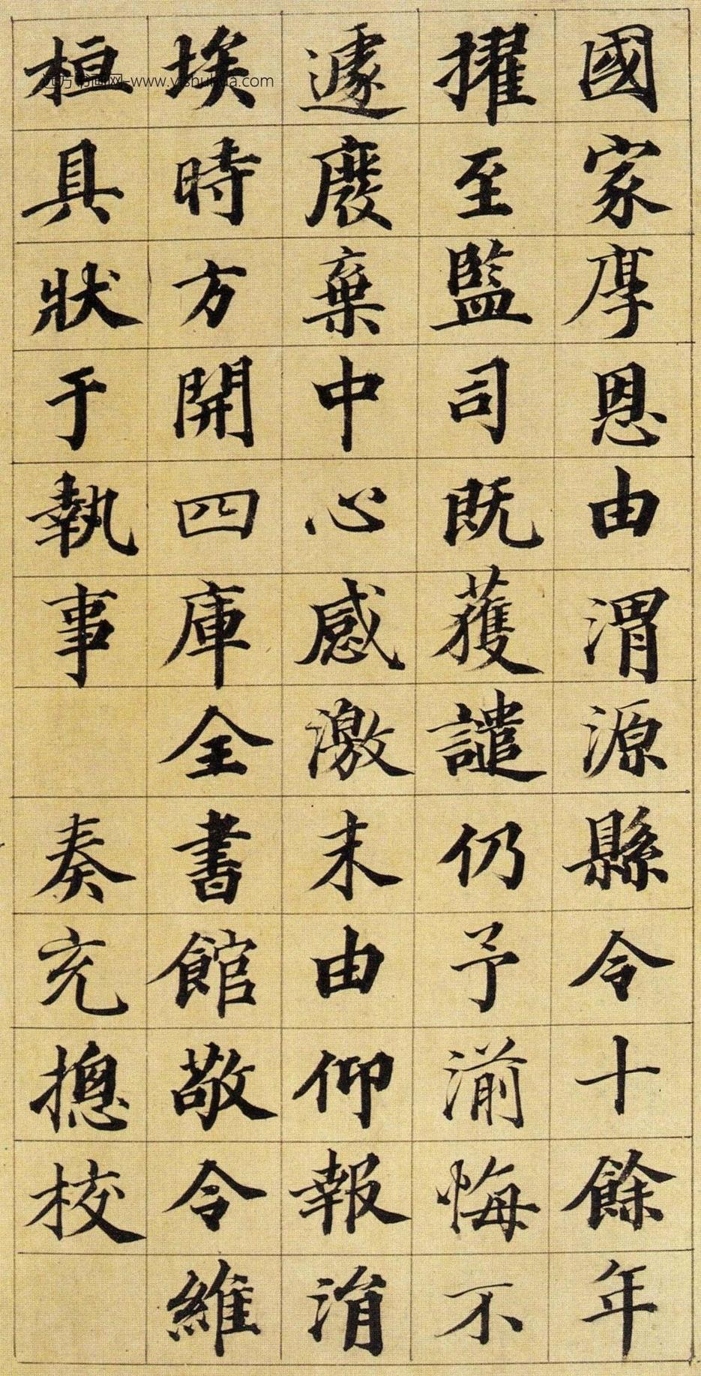 國家厚恩由渭源縣令十餘年
擢至監司既獲譴仍予湔悔不
遽廢棄中心感激末由仰報涓
埃時方開四庫全書館敬令維
桓具狀于執事
奏充摠校
www.yishuhua.com